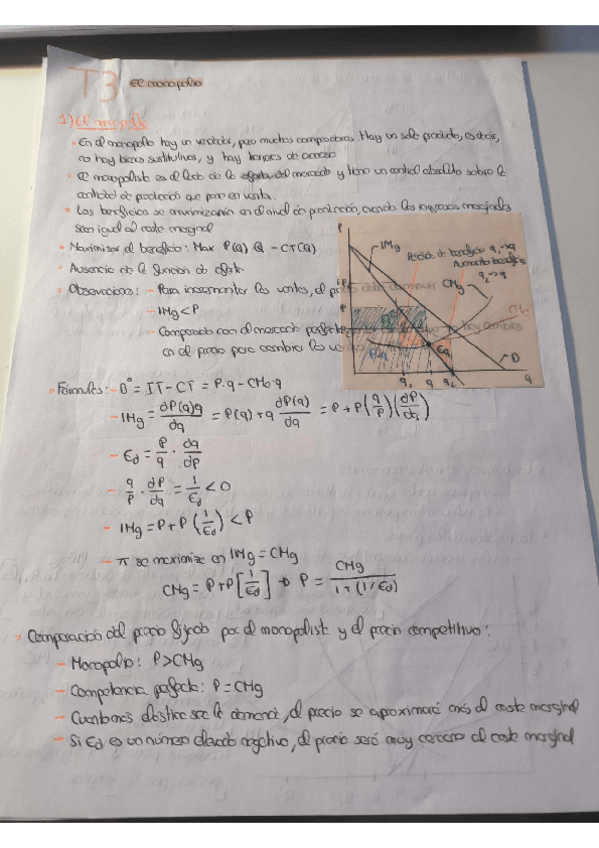 T3 El monopolio
1) El monopolio
- En el monopolio hay un vendedor, pero muchos compradores. Hay un solo producto, es decir,
no hay bienes sustitutivos, y hay barreras de acceso
- El monopolista es el lado de la oferta del mercado y tiene un control absoluto sobre la
cantidad de producción que pone en venta.
- Los beneficios se maximizarán en el nivel de producción, cuando los ingresos marginales
sean igual al coste marginal
- Maximizar el beneficio: Max P(Q) Q - CT(Q)
- Ausencia de la función de oferta
- Observaciones: - Para incrementar las ventas, el precio
- IMg < P
- Comparado con el mercado perfecto
en el precio para cambiar las ventas
P
IMg
Pérdida de beneficio q₁→q
Aumento beneficio
q₂→q
CMg
P
D
q₁ q q₂ q
- Fórmulas: - Bº = IT - CT = P·q - CMe·q
- IMg = dP(q)q / dq = P(q) + q dP(q) / dq = P + P (q/P) (dP/dq)
- Ed = P/q · dq/dP
- q/P · dP/dq = 1/Ed < 0
- IMg = P + P (1/Ed) < P
- π se maximiza en IMg = CMg
CMg = P + P [1/Ed] → P = CMg / 1 + (1/Ed)
- Comparación del precio fijado por el monopolista y el precio competitivo:
- Monopolio: P > CMg
- Competencia perfecta: P = CMg
- Cuanto más elástica sea la demanda, el precio se aproximará más al coste marginal
- Si Ed es un número elevado negativo, el precio será muy cercano al coste marginal